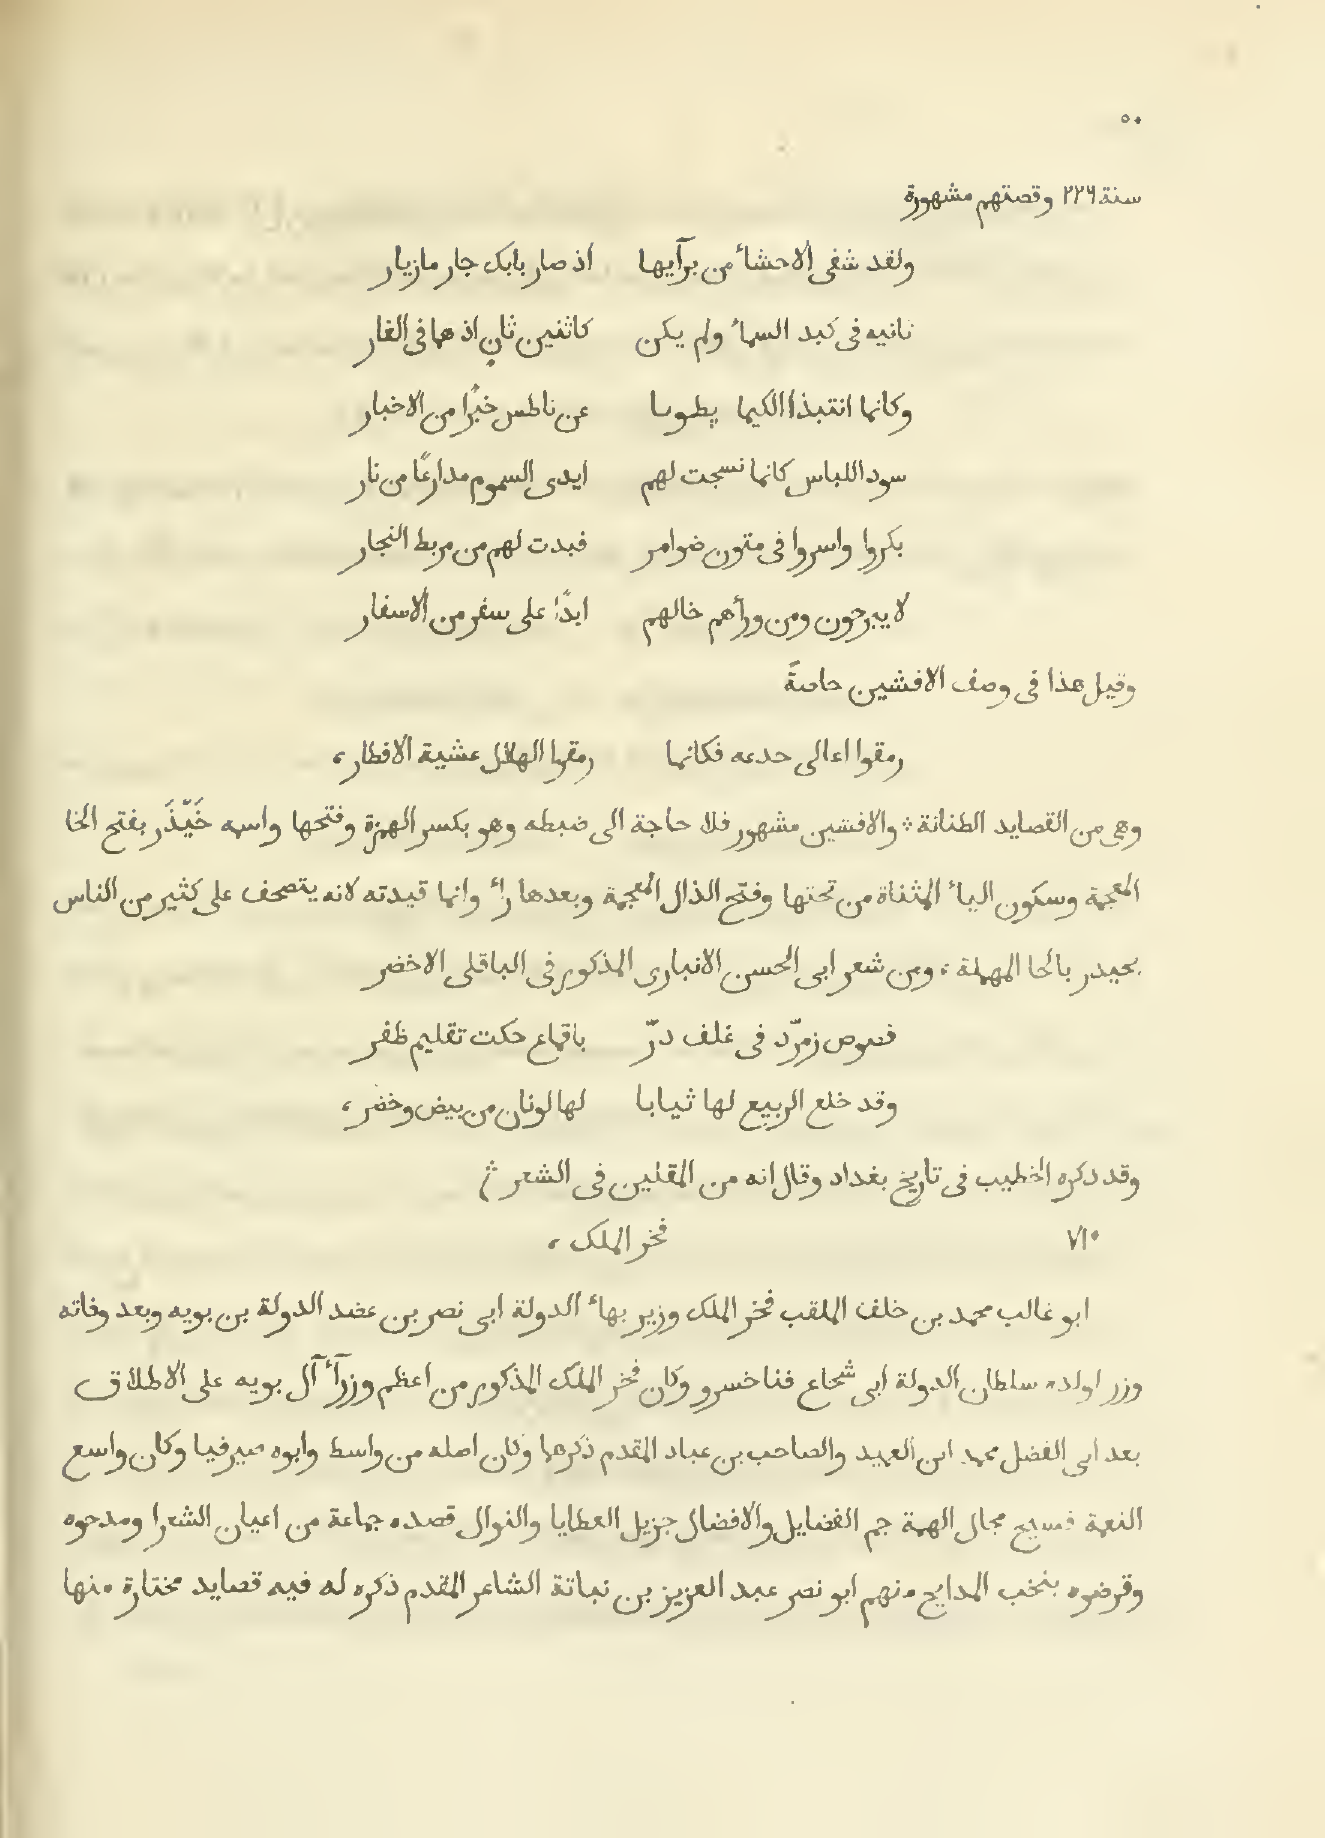 ٥٠
سنة ٢٢٦ وقصتهم مشهورة
ولقد شفى الاحشاء من برآيها اذ صار بابك جار مازيار
ثانيه فى كبد السماء ولم يكن كاثنين ثان اذ هما فى الغار
وكانما انتبذا الكيما يطويا عن ناطس خبرًا من الاخبار
سود اللباس كانما نسجت لهم ايدى السموم مدارعًا من نار
بكروا واسروا فى متون ضوامر فبدت لهم من مربط النجار
لا يبرحون ومن ورأهم خالهم ابدًا على سفر من الاسفار
وقيل هذا فى وصف الافشين خاصةً
رمقوا اعالى جدعه فكانما رمقوا الهلال عشية الافطار،
وهى من القصايد الطنانة ۞ والافشين مشهور فلا حاجة الى ضبطه وهو بكسر الهمزة وفتحها واسمه خَيْذَر بفتح الخا
المعجمة وسكون الياء المثناة من تحتها وفتح الذال المعجمة وبعدها راء وانما قيدته لانه يتصحف على كثير من الناس
بحيدر بالحا المهملة، ومن شعر ابى الحسن الانبارى المذكور فى الباقلى الاخضر
فصوص زمرّد فى غلف درّ باقماع حكت تقليم ظفر
وقد خلع الربيع لها ثيابا لها لونان من بيض وخضر،
وقد ذكره الخطيب فى تاريخ بغداد وقال انه من المقلين فى الشعر
٧١٠ فخر الملك،
ابو غالب محمد بن خلف الملقب فخر الملك وزير بهاء الدولة ابى نصر بن عضد الدولة بن بويه وبعد وفاته
وزر لولده سلطان الدولة ابى شجاع فناخسرو وكان فخر الملك المذكور من اعظم وزرآء آل بويه على الاطلاق
بعد ابى الفضل محمد ابن العميد والصاحب بن عباد المقدم ذكرهما وكان اصله من واسط وابوه صيرفيا وكان واسع
النعمة فسيح مجال الهمة جم الفضايل والافضال جزيل العطايا والنوال قصده جماعة من اعيان الشعرا ومدحوه
وقرضوه بنخب المدايح منهم ابو نصر عبد العزيز بن نباتة الشاعر المقدم ذكره له فيه قصايد مختارة منها